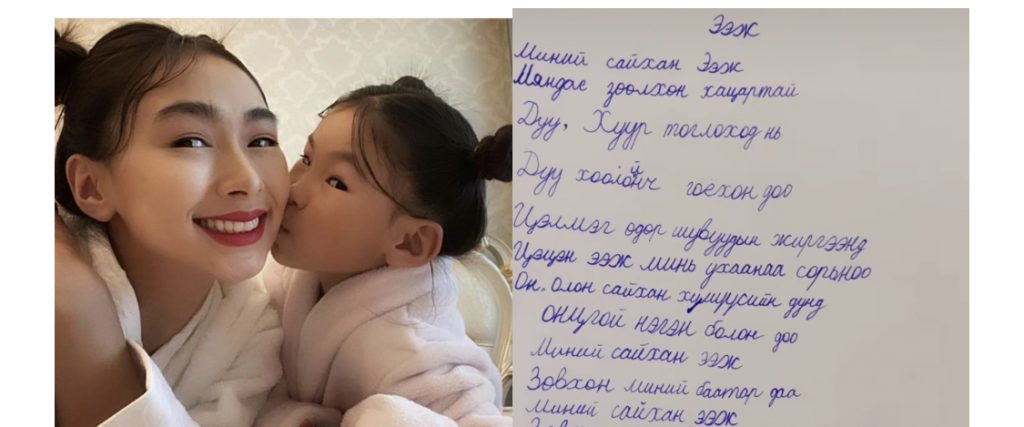 Ээж
Миний сайхан Ээж
Мяндас зөөлхөн хацартай
Дуу, Хуур тоглоход нь
Дуу хоолойнч гоёхон доо
Цэлмэг өдөр шувуудын жиргээнд
Цэцэн ээж минь ухаанаа сорьноо
Он. олон сайхан хүмүүсийн дунд
онцгой нэгэн болон доо
Миний сайхан ээж
Зөвхөн миний баатар даа
Миний сайхан ээж